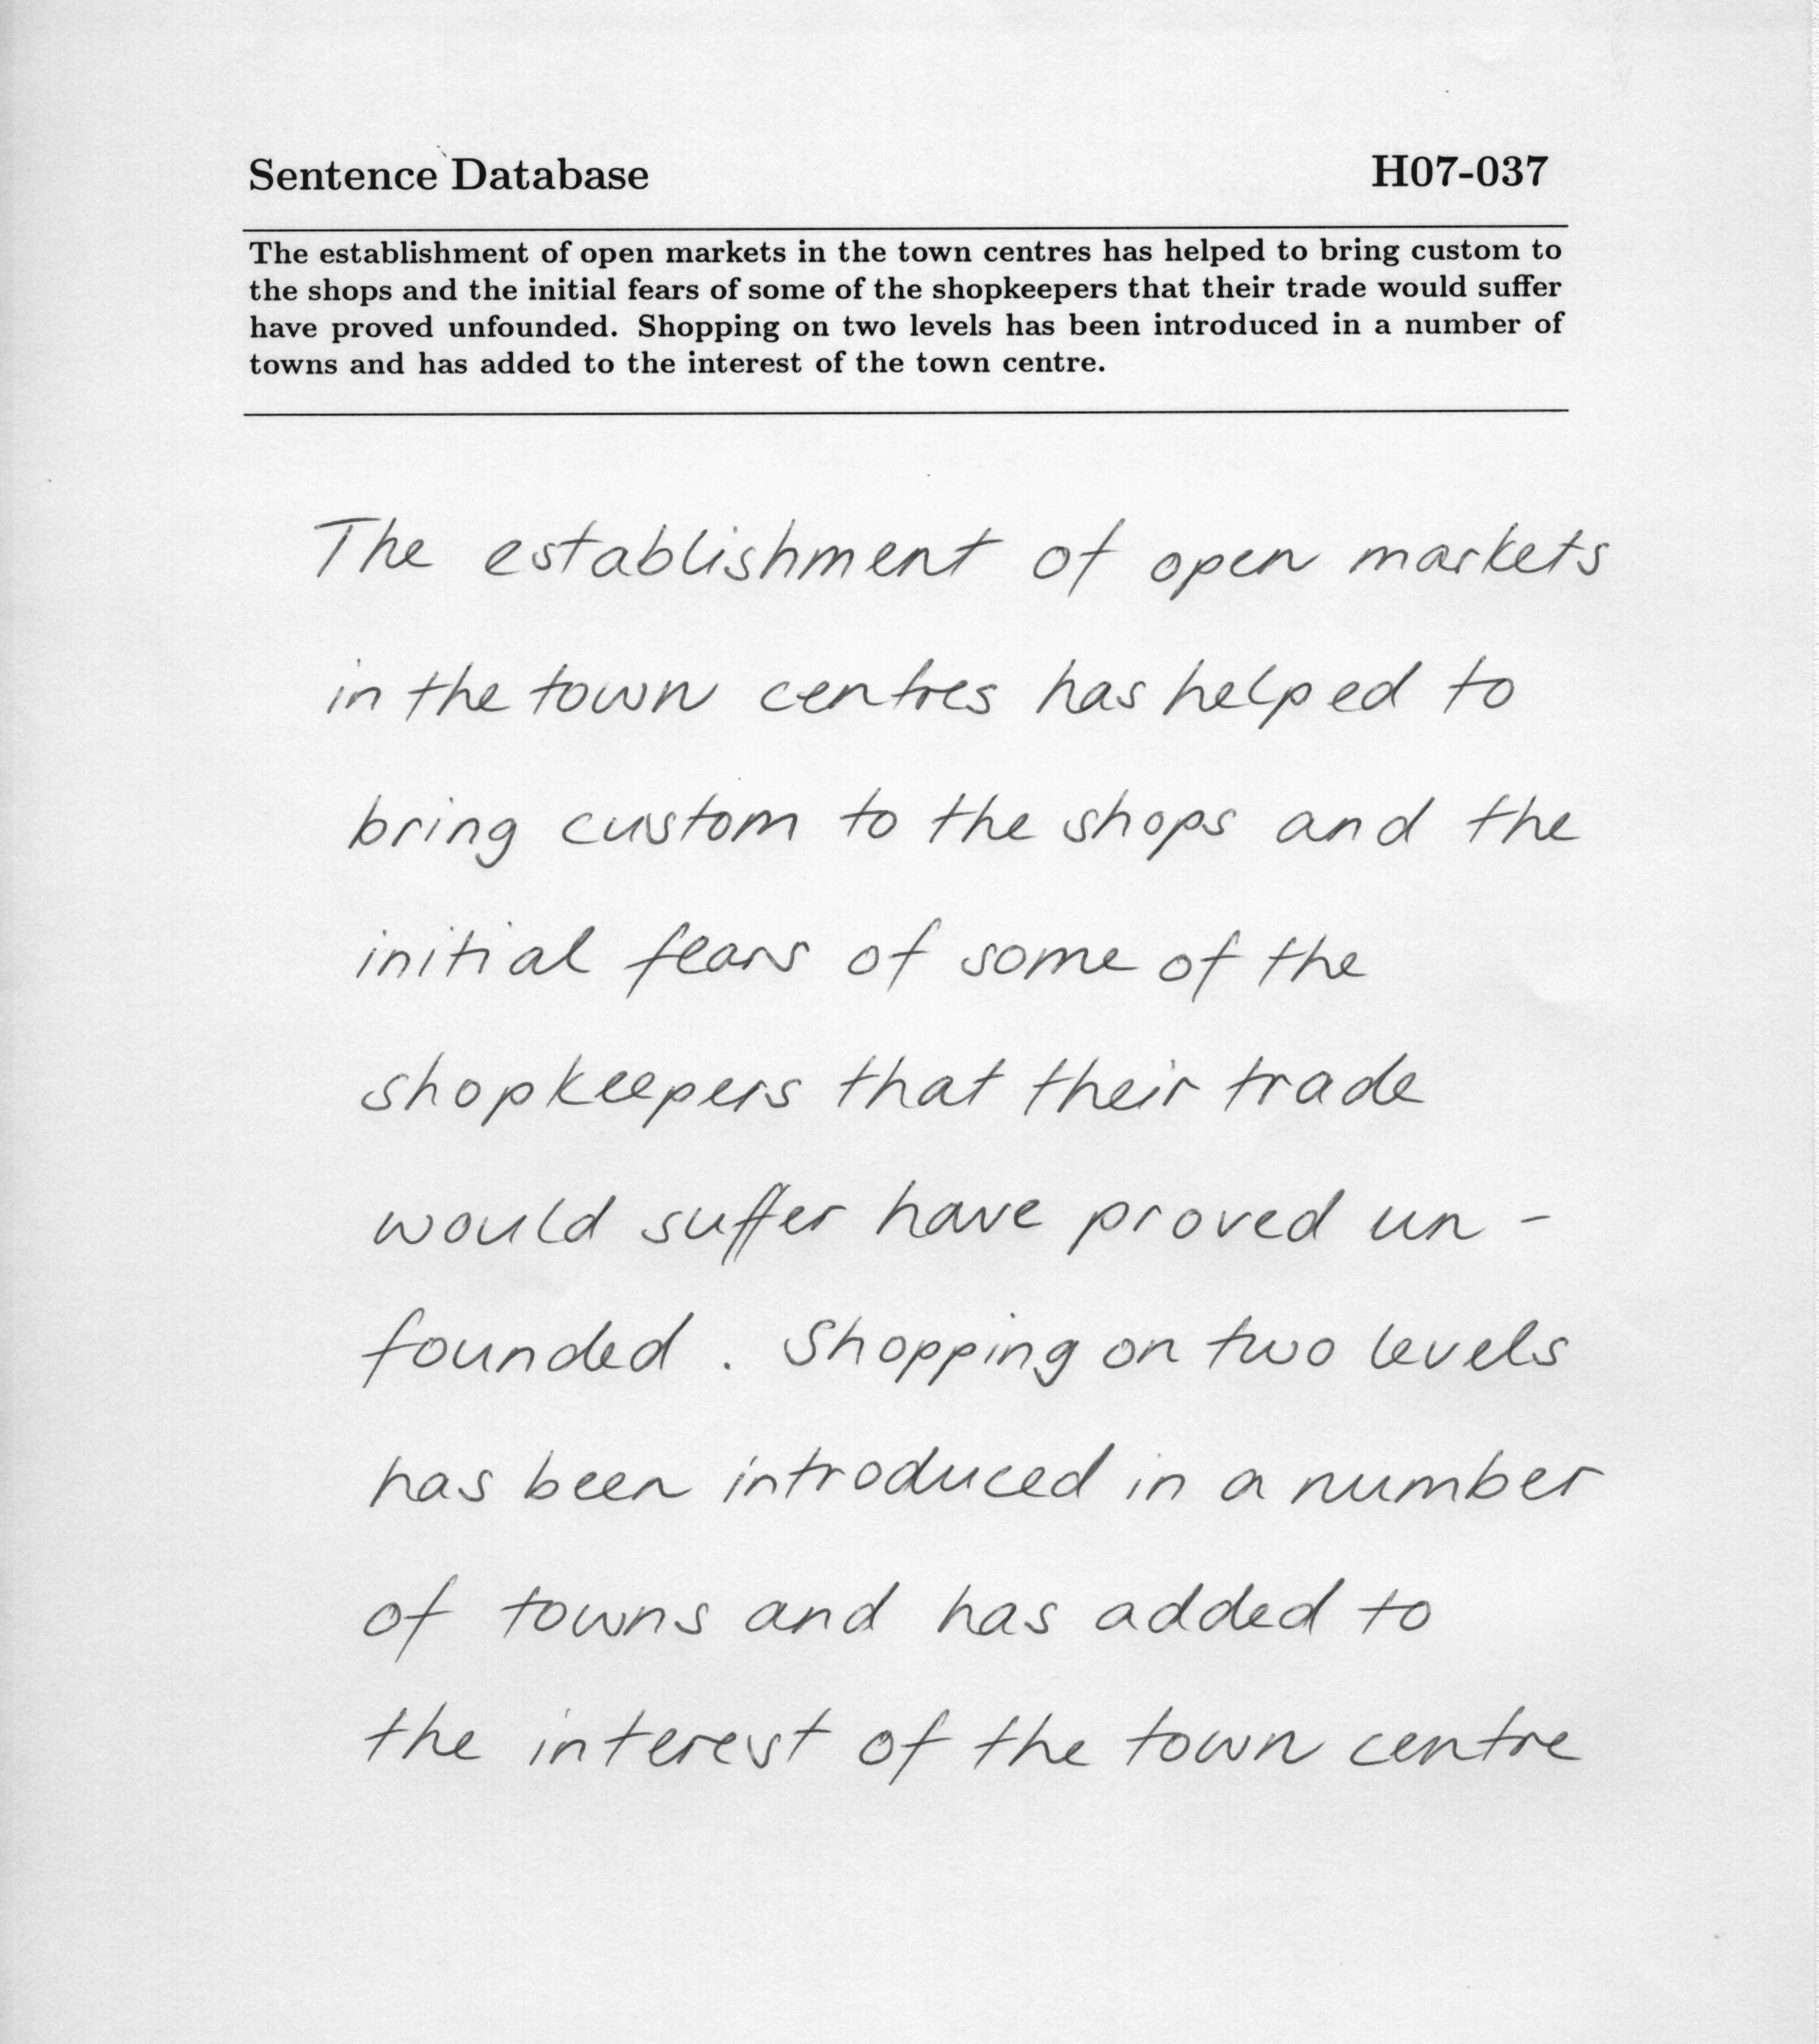 Sentence Database H07-037
The establishment of open markets in the town centres has helped to bring custom to
the shops and the initial fears of some of the shopkeepers that their trade would suffer
have proved unfounded. Shopping on two levels has been introduced in a number of
towns and has added to the interest of the town centre.
The establishment of open markets
in the town centres has helped to
bring custom to the shops and the
initial fears of some of the
shopkeepers that their trade
would suffer have proved un-
founded. Shopping on two levels
has been introduced in a number
of towns and has added to
the interest of the town centre